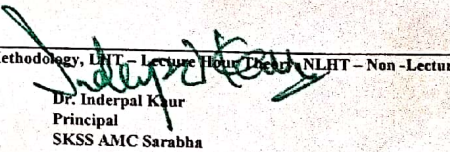 ethodology, LHT – Lecture Hour Theory, NLHT – Non -Lectur
Inderpal Kaur
Dr. Inderpal Kaur
Principal
SKSS AMC Sarabha